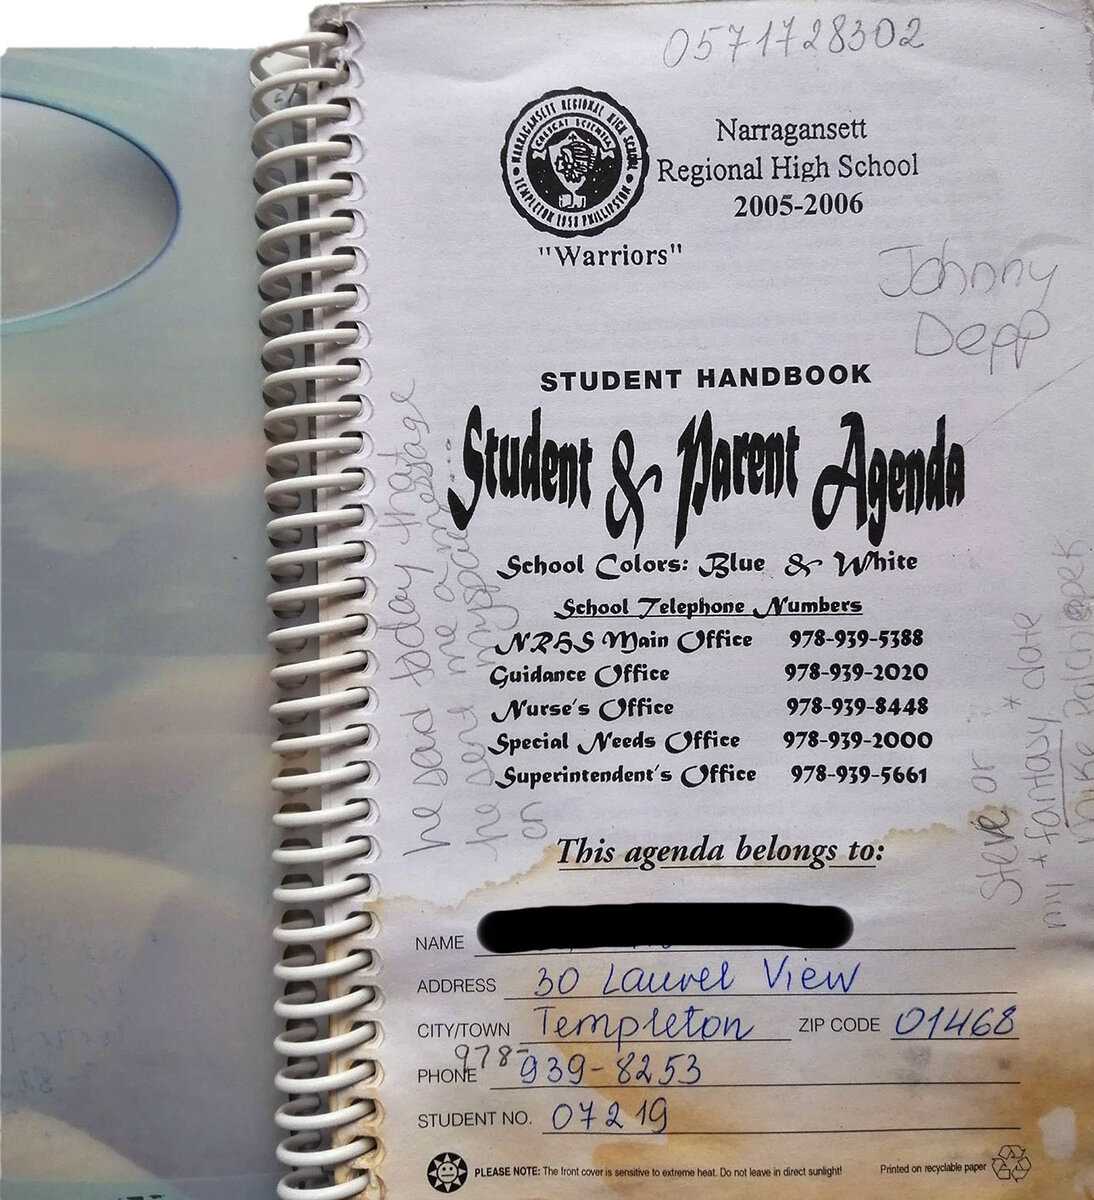 0571728302
NARRAGANSETT REGIONAL HIGH SCHOOL
TEMPLETON 1958 PHILLIPSTON
Narragansett
Regional High School
2005-2006
"Warriors"
Johnny
Depp
STUDENT HANDBOOK
Student & Parent Agenda
School Colors: Blue & White
School Telephone Numbers
NRHS Main Office 978-939-5388
Guidance Office 978-939-2020
Nurse's Office 978-939-8448
Special Needs Office 978-939-2000
Superintendent's Office 978-939-5661
he said today that
he send me a message
on myspace....
Steve or
my *fantasy* date
Mike
This agenda belongs to:
NAME
ADDRESS 30 Laurel View
CITY/TOWN Templeton ZIP CODE 01468
PHONE 978-939-8253
STUDENT NO. 07219
PLEASE NOTE: The front cover is sensitive to extreme heat. Do not leave in direct sunlight! Printed on recyclable paper